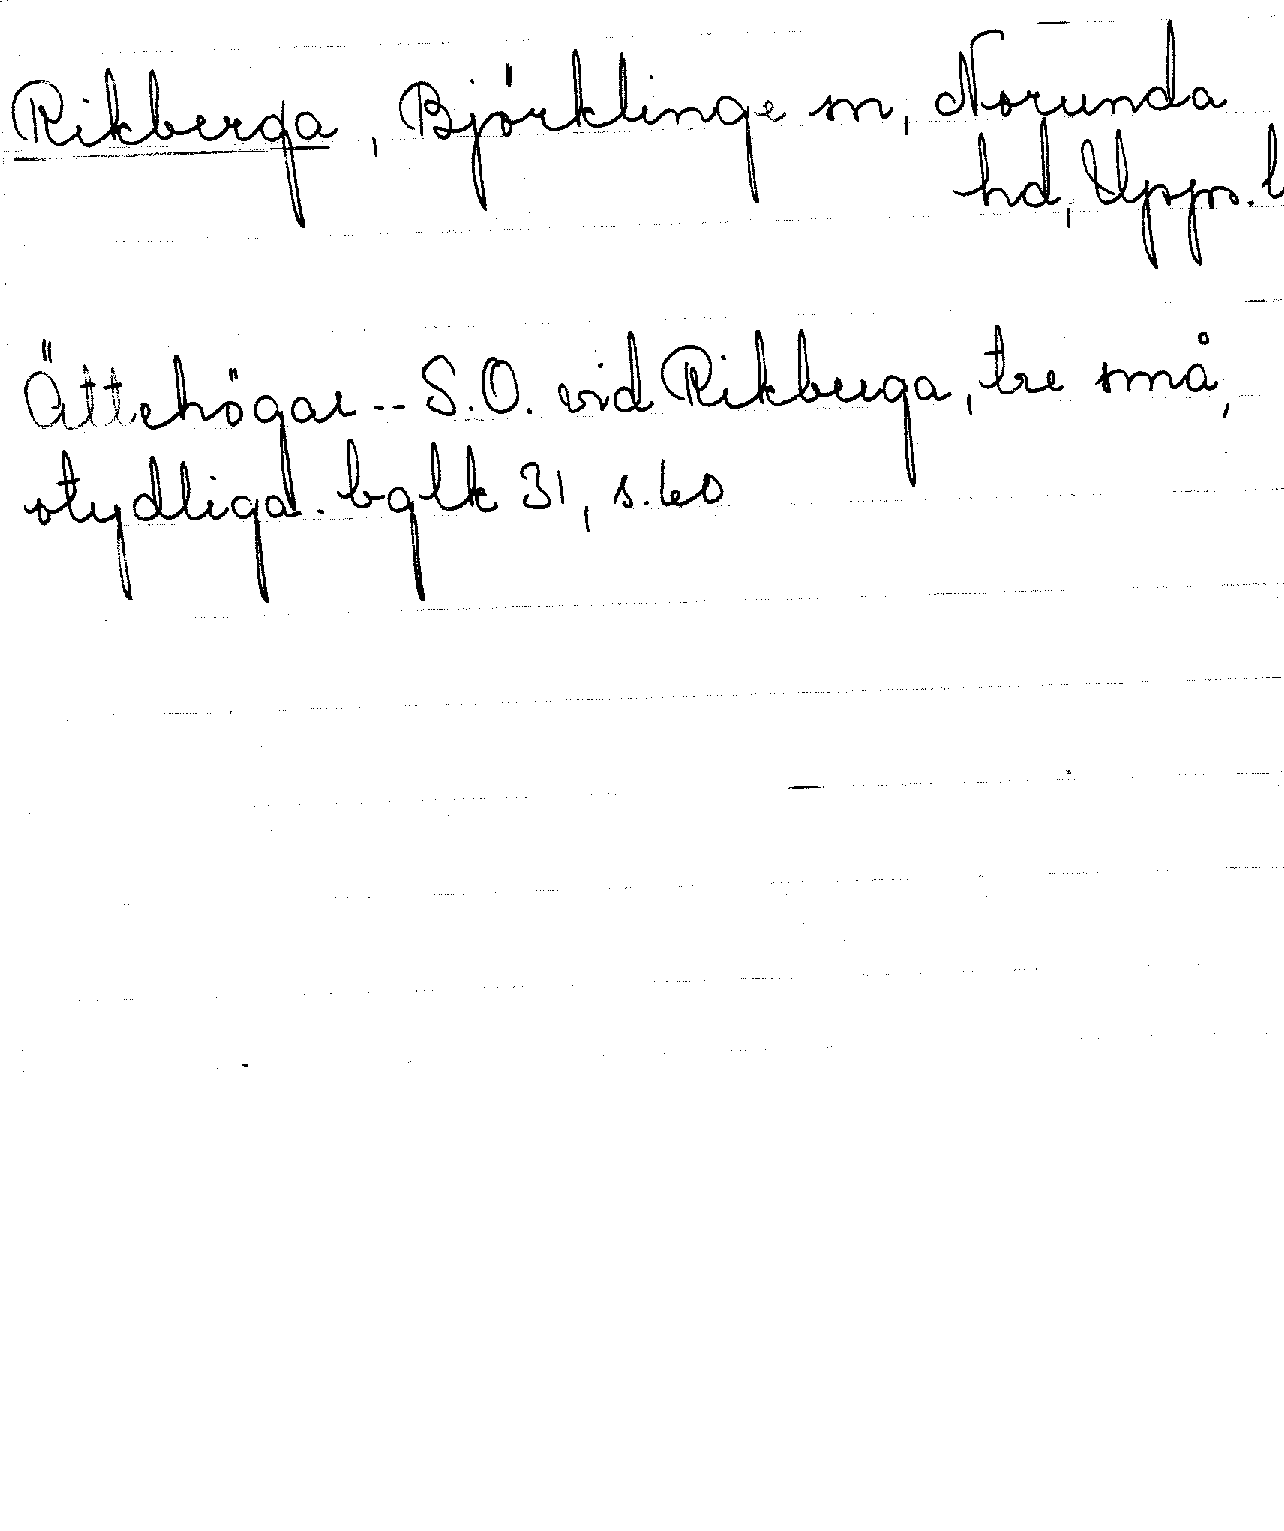 Rikberga, Björklinge sn, Norunda
hd, Upps. l
Ättehögar -- S.O. vid Rikberga, tre små,
otydliga. bglk 31, s. 60